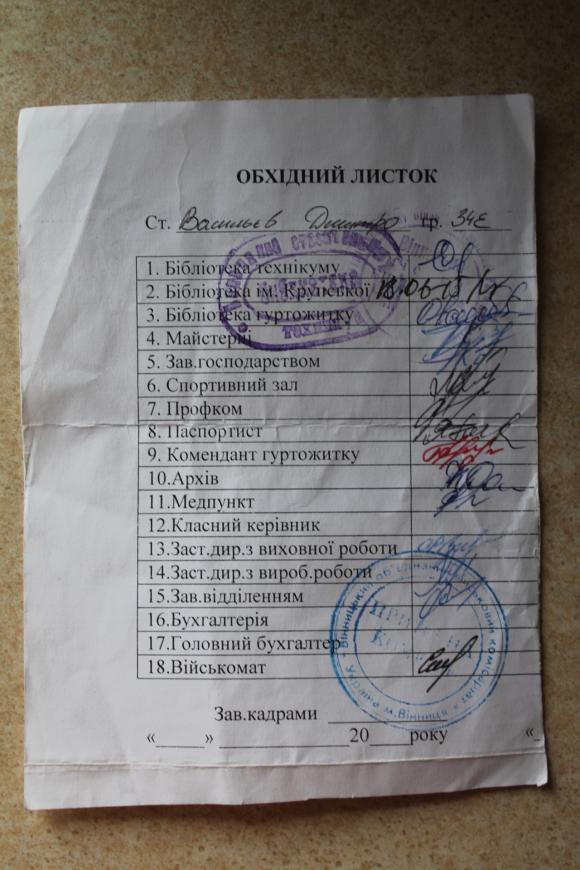 ОБХІДНИЙ ЛИСТОК
Ст. Васильєв Дмитро гр. 34Е
1. Бібліотека технікуму
2. Бібліотека ім. Крупської 18.06.15
3. Бібліотека гуртожитку
4. Майстерні
5. Зав.господарством
6. Спортивний зал
7. Профком
8. Паспортист
9. Комендант гуртожитку
10.Архів
11.Медпункт
12.Класний керівник
13.Заст.дир.з виховної роботи
14.Заст.дир.з вироб.роботи
15.Зав.відділенням
16.Бухгалтерія
17.Головний бухгалтер
18.Військомат
Зав.кадрами
«_____» _____________20____року «_